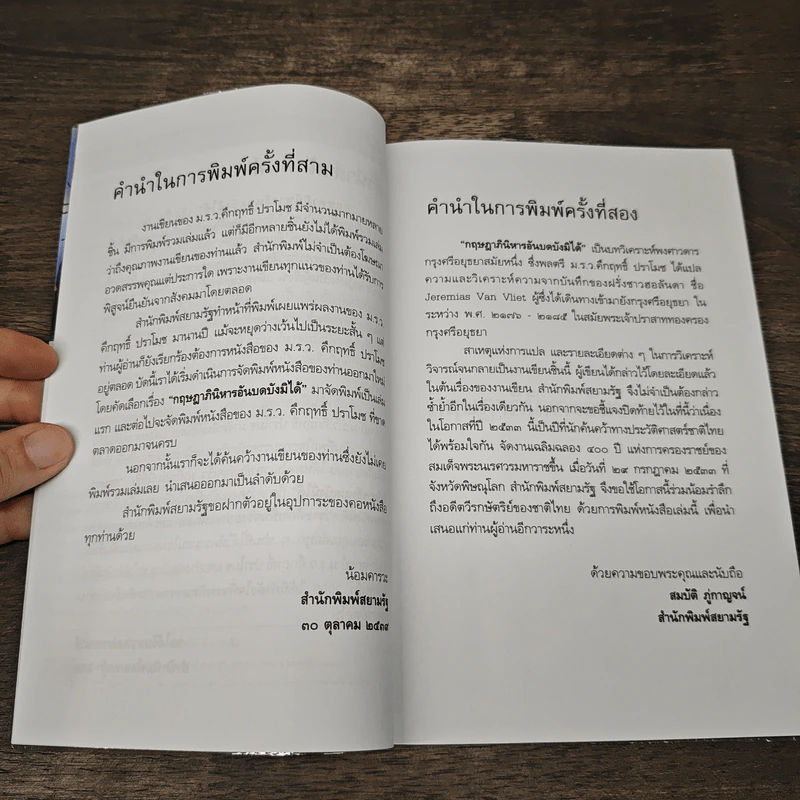 คำนำในการพิมพ์ครั้งที่สาม
งานเขียนของ ม.ร.ว.คึกฤทธิ์ ปราโมช มีจำนวนมากมายหลาย
ชิ้น มีการพิมพ์รวมเล่มแล้ว แต่ก็มีอีกหลายชิ้นยังไม่ได้พิมพ์รวมเล่ม
ว่าถึงคุณภาพงานเขียนของท่านแล้ว สำนักพิมพ์ไม่จำเป็นต้องโฆษณา
อวดสรรพคุณแต่ประการใด เพราะงานเขียนทุกแนวของท่านได้รับการ
พิสูจน์ยืนยันจากสังคมมาโดยตลอด
สำนักพิมพ์สยามรัฐทำหน้าที่พิมพ์เผยแพร่ผลงานของ ม.ร.ว.
คึกฤทธิ์ ปราโมช มานานปี แม้จะหยุดว่างเว้นไปเป็นระยะสั้น ๆ แต่
ท่านผู้อ่านก็ยังเรียกร้องต้องการหนังสือของ ม.ร.ว. คึกฤทธิ์ ปราโมช
อยู่ตลอด บัดนี้เราได้เริ่มดำเนินการจัดพิมพ์หนังสือของท่านออกมาใหม่
โดยคัดเลือกเรื่อง “กฤษฎาภินิหารอันบดบังมิได้” มาจัดพิมพ์เป็นเล่ม
แรก และต่อไปจะจัดพิมพ์หนังสือของ ม.ร.ว. คึกฤทธิ์ ปราโมช ที่ขาด
ตลาดออกมาจนครบ
นอกจากนั้นเราก็จะได้ค้นคว้างานเขียนของท่านซึ่งยังไม่เคย
พิมพ์รวมเล่มเลย นำเสนอออกมาเป็นลำดับด้วย
สำนักพิมพ์สยามรัฐขอฝากตัวอยู่ในอุปการะของคอหนังสือ
ทุกท่านด้วย
น้อมคารวะ
สำนักพิมพ์สยามรัฐ
๓๐ ตุลาคม ๒๕๓๙
คำนำในการพิมพ์ครั้งที่สอง
“กฤษฎาภินิหารอันบดบังมิได้” เป็นบทวิเคราะห์พงศาวดาร
กรุงศรีอยุธยาสมัยหนึ่ง ซึ่งพลตรี ม.ร.ว.คึกฤทธิ์ ปราโมช ได้แปล
ความและวิเคราะห์ความจากบันทึกของฝรั่งชาวฮอลันดา ชื่อ
Jeremias Van Vliet ผู้ซึ่งได้เดินทางเข้ามายังกรุงศรีอยุธยา ใน
ระหว่าง พ.ศ. ๒๑๗๖ - ๒๑๘๕ ในสมัยพระเจ้าปราสาททองครอง
กรุงศรีอยุธยา
สาเหตุแห่งการแปล และรายละเอียดต่าง ๆ ในการวิเคราะห์
วิจารณ์จนกลายเป็นงานเขียนชิ้นนี้ ผู้เขียนได้กล่าวไว้โดยละเอียดแล้ว
ในต้นเรื่องของงานเขียน สำนักพิมพ์สยามรัฐ จึงไม่จำเป็นต้องกล่าว
ซ้ำย้ำอีกในเรื่องเดียวกัน นอกจากจะขอชี้แจงปิดท้ายไว้ในที่นี้ว่าเนื่อง
ในโอกาสที่ปี ๒๕๓๓ นี้เป็นปีที่นักค้นคว้าทางประวัติศาสตร์ชาติไทย
ได้พร้อมใจกัน จัดงานเฉลิมฉลอง ๔๐๐ ปี แห่งการครองราชย์ของ
สมเด็จพระนเรศวรมหาราชขึ้น เมื่อวันที่ ๒๙ กรกฎาคม ๒๕๓๓ ที่
จังหวัดพิษณุโลก สำนักพิมพ์สยามรัฐ จึงขอใช้โอกาสนี้ร่วมน้อมรำลึก
ถึงอดีตวีรกษัตริย์ของชาติไทย ด้วยการพิมพ์หนังสือเล่มนี้ เพื่อนำ
เสนอแก่ท่านผู้อ่านอีกวาระหนึ่ง
ด้วยความขอบพระคุณและนับถือ
สมบัติ ภู่กาญจน์
สำนักพิมพ์สยามรัฐ